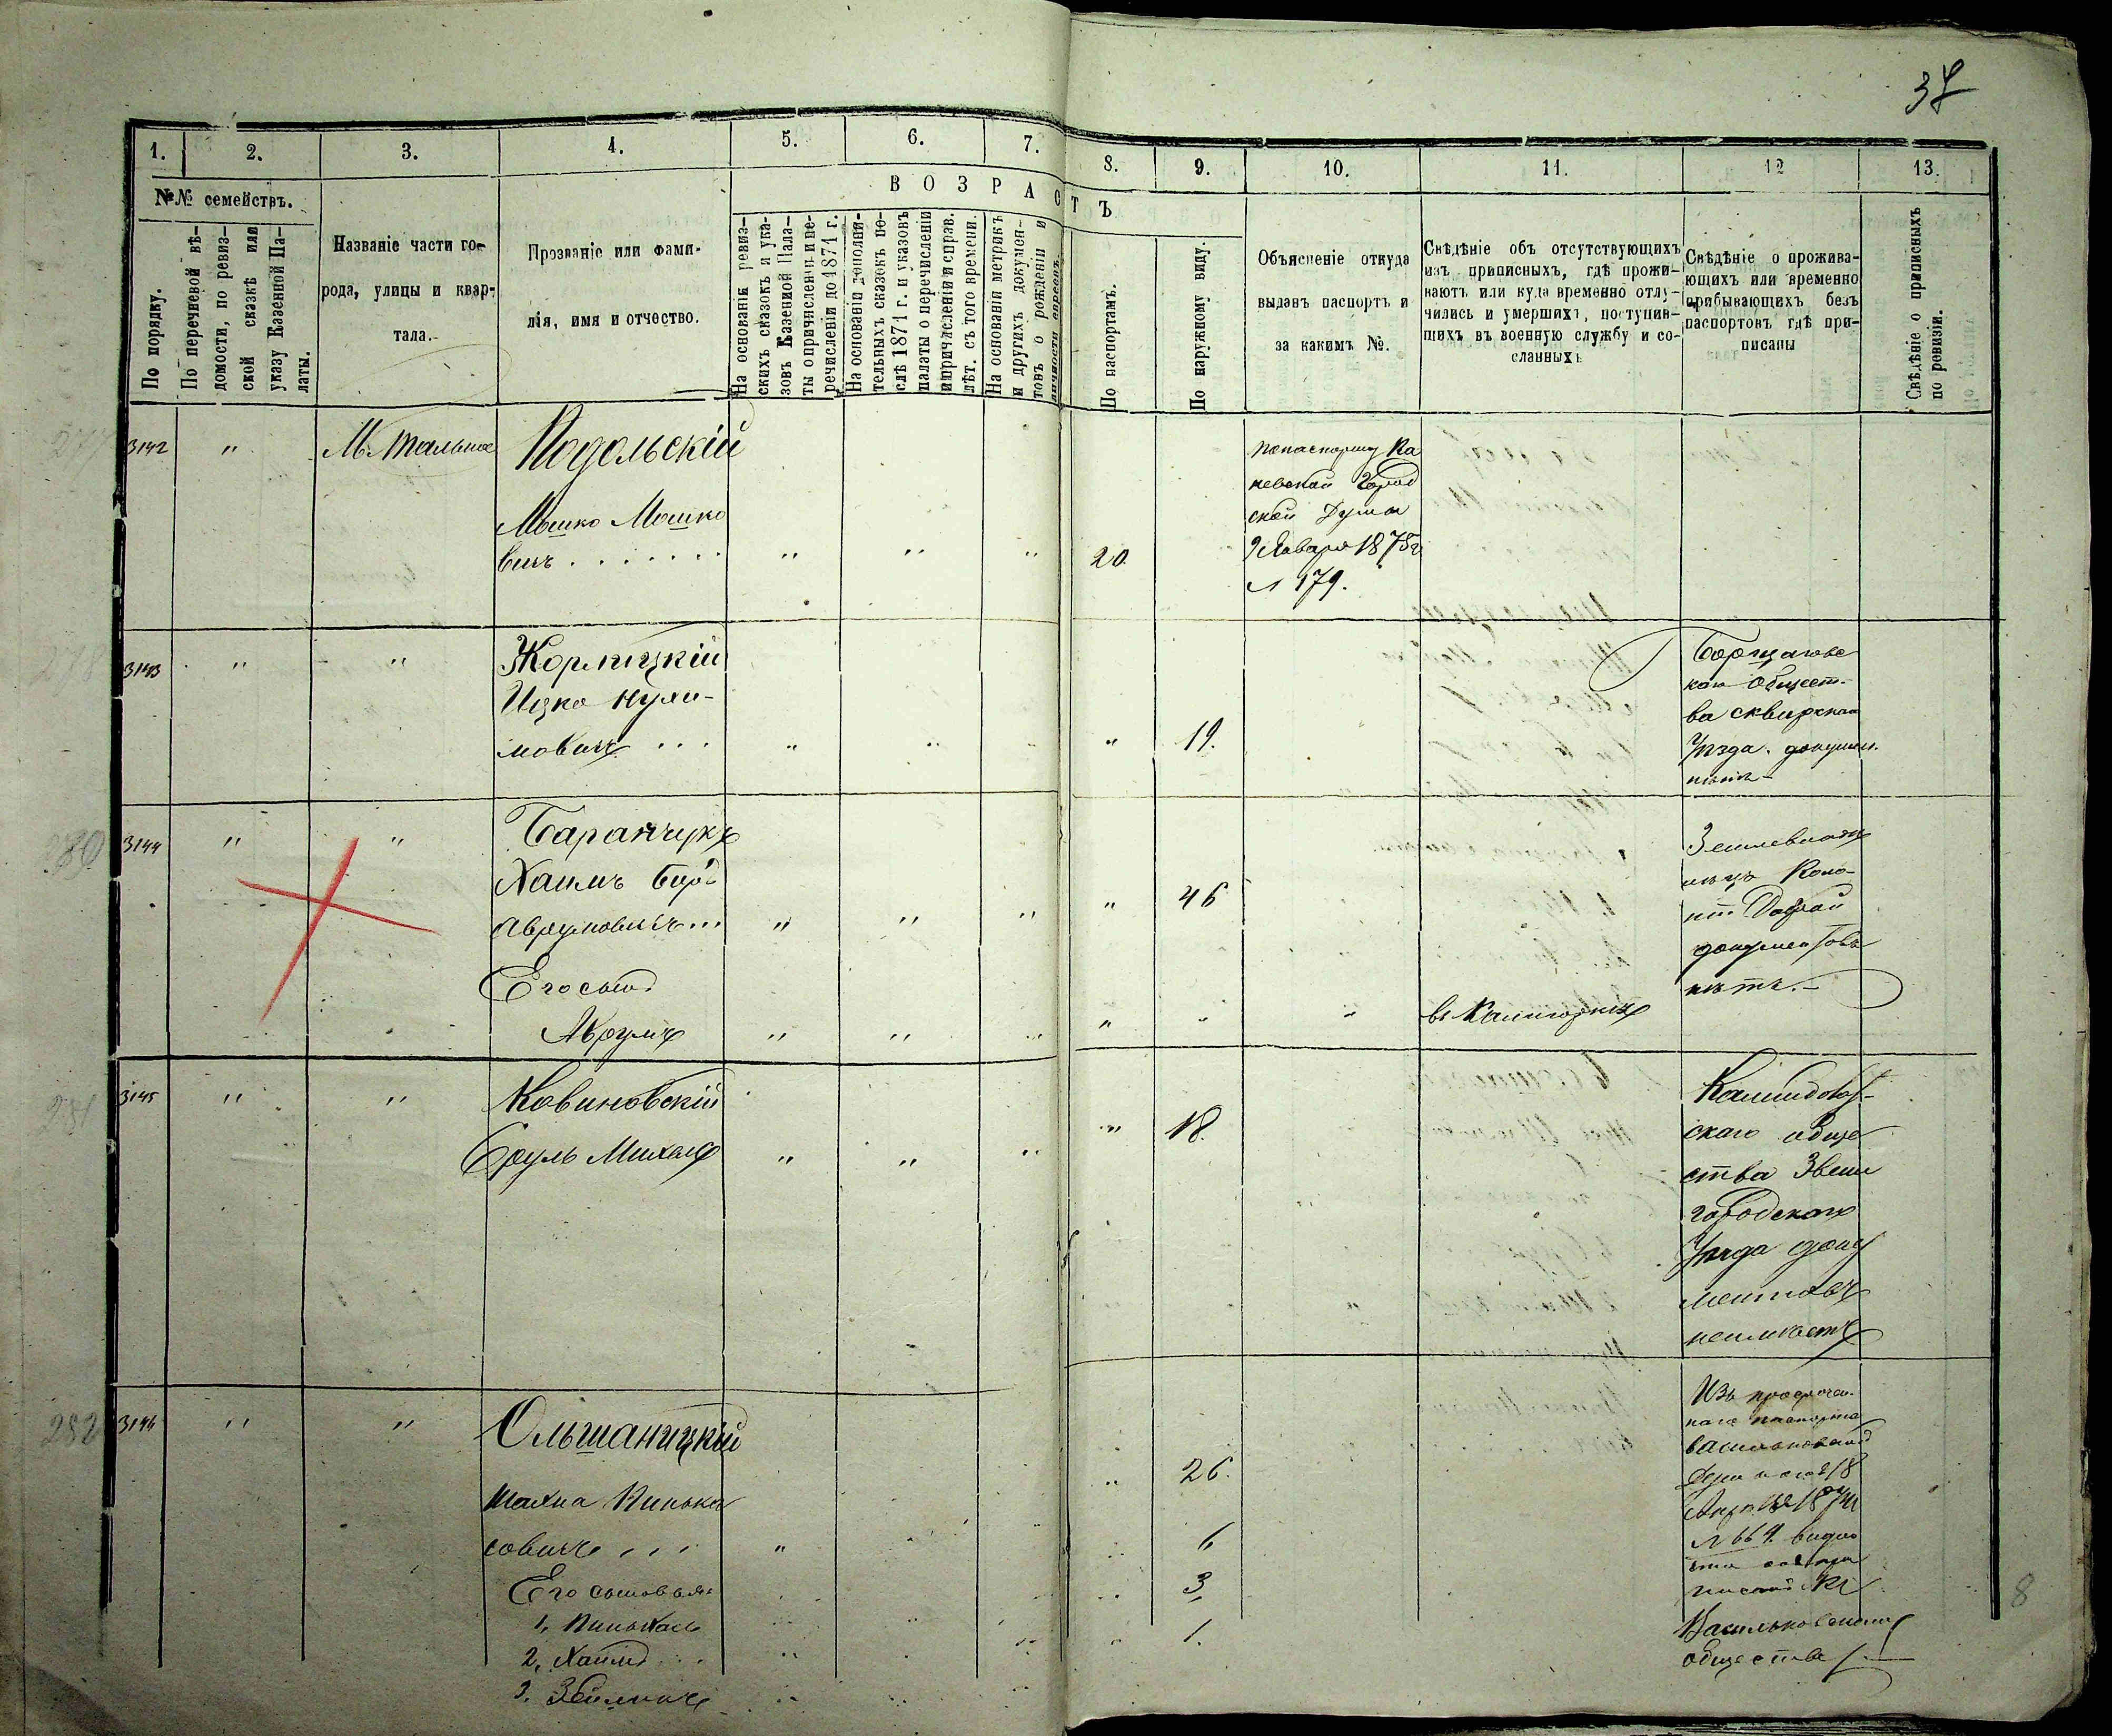 37
1. 2. 3. 4. 5. 6. 7. 8. 9. 10. 11. 12 13.
№№ семействъ.
ВОЗРАСТЪ
По порядку.
По перечневой вѣ-
домости, по ревиз-
ской сказкѣ или
указу Казенной Па-
латы.
Названіе части го-
рода, улицы и квар-
тала.
Прозваніе или фами-
лія, имя и отчество.
На основаніи ревиз-
скихъ сказокъ и ука-
зовъ Казенной Пала-
ты о причисленіи и пе-
речисленіи до 1871 г.
На основаніи дополни-
тельныхъ сказокъ по-
слѣ 1871 г. и указовъ
палаты о перечисленіи
и причисленіи и справ.
лѣт. съ того времени.
На основаніи метрикъ
и другихъ докумен-
товъ о рожденіи и
По паспортамъ.
По наружному виду.
Объясненіе откуда
выданъ паспортъ и
за какимъ №.
Свѣдѣніе объ отсутствующихъ
изъ приписныхъ, гдѣ прожи-
ваютъ или куда временно отлу-
чились и умершихъ, поступив-
шихъ въ военную службу и со-
сланныхъ
Свѣдѣніе о прожива-
ющихъ или временно
прибывающихъ безъ
паспортовъ гдѣ при-
писаны
Свѣдѣніе о приписныхъ
по ревизіи.
277 3142 " М. Тальное Подольскій
Мошко Мошко
вичъ . . . . . . " " " 20.
по паспорту Ка
невской Город
ской Думы
9 Января 1875 г
№ 179.
278 3143 " " Жорницкій
Ицко Нухи-
мовичъ . . . " " " 19.
Борщаговс
каго Общест-
ва сквирскаго
Уѣзда. докумен.
280 3144 " " Баранчукъ
Хаимъ Беръ
Аврумовичъ... " " " " 46
Его сынъ
Аврумъ " " " " " "
Землевладѣ
документовъ
нѣтъ.-
281 3145 " " Ковиновскій
Сруль Михель " " " " 18.
скаго обще
ства Звени
городскаго
Уѣзда доку
ментовъ
неимѣетъ
282 3146 " " Ольшаницкій
Шахна Пинька
совичъ . . . " " 26.
Его сыновья:
1, Пинькасъ 6
2, Хаимъ . . . 3,
3. 1.
Изъ просрочен-
наго паспорта
Васильковской
Думы
№ 664 видно
что
Васильковскому
обществу
8